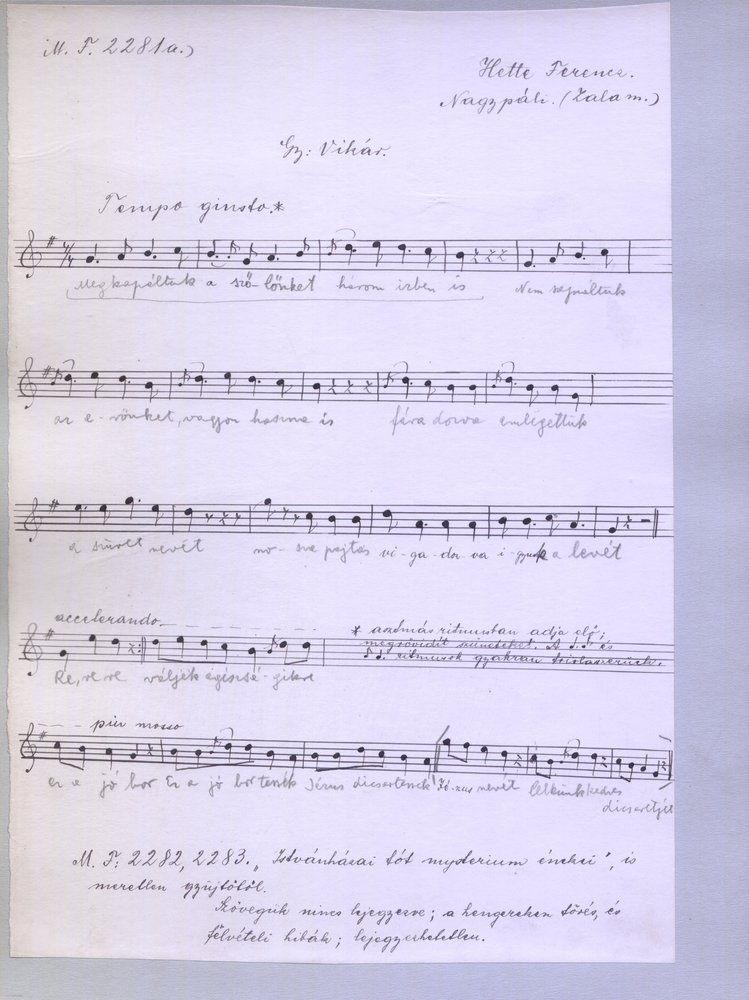 M. F. 2281a.)
Hette Ferencz.
Nagypáli. (Zala m.)
Gy: Vikár.
Tempo giusto.*
4/4
Megkapáltuk a sző-lőnket három izben is Nem sajnáltuk
az e-rőnket, vagyon haszna is fára dozva emlegettük
a szüret nevét no-sza pajtás vi-ga-doz-va i-gyuk a levét
accelerando
* aszómás ritmusban adja elő;
megrövidít szüneteket. A ♩. ♪ és
♪ ♩. ritmusok gyakran triolaszerűek.
Re, re re váljék egészsé-gikre
più mosso
ez a jó bor Ez a jó bor tenék Jézus dicsértessék Jé-zus nevét lelkünk kedves
dicséretjét
M. F: 2282, 2283. „Istvánházai tót mysterium énekei", is
meretlen gyűjtőtől.
Szövegük nincs lejegyezve; a hengereken törés, és
felvételi hibák; lejegyezhetetlen.